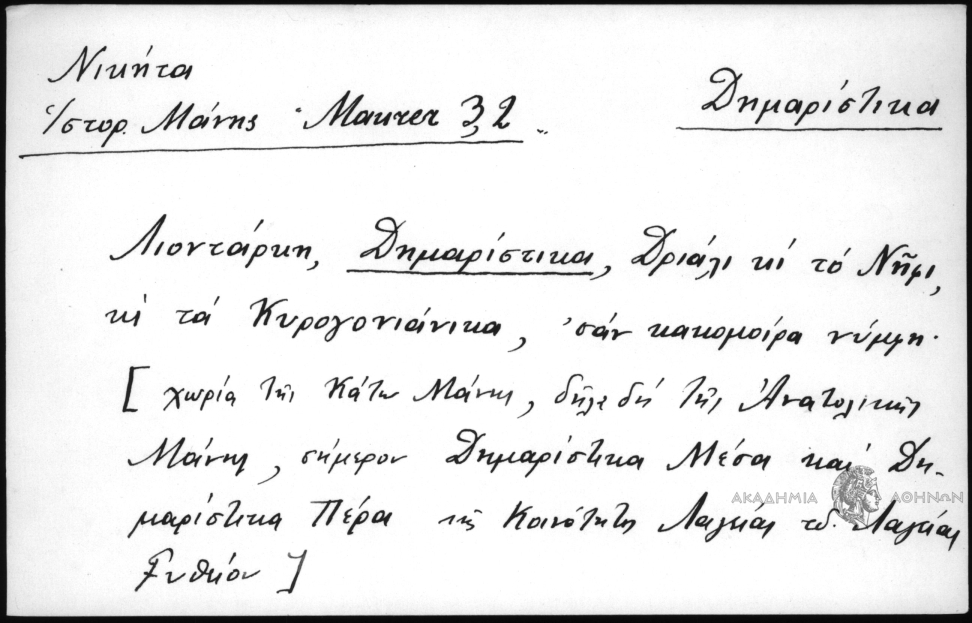 Νικήτα
Ἱστορ. Μάνης Maurer 3,2
Δημαρίστικα
Λιοντάρκη, Δημαρίστικα, Δριάλι κί τό Νῆφι,
κί τά Κυρογονιάνικα, 'σάν κακομοίρα νύμφη.
[ χωρία τῆς Κάτω Μάνης, δηλεδή τῆς Ἀνατολικῆς
Μάνης, σήμερον Δημαρίστικα Μέσα καί Δη-
ΑΚΑΔΗΜΙΑ ΑΘΗΝΩΝ
μαρίστικα Πέρα τῆς Κοινότητος Λαγίας τ.δ. Λαγίας
Γυθείου ]